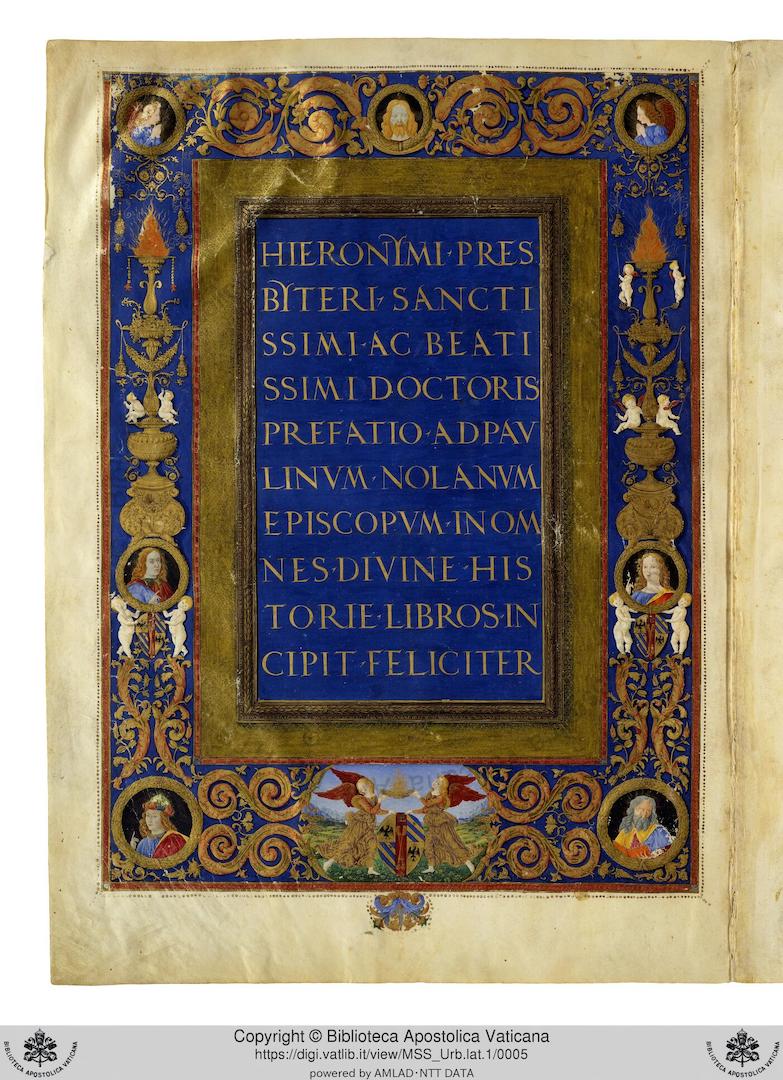 HIERONYMI·PRES
BYTERI·SANCTI
SSIMI·AC BEATI
SSIMI DOCTORIS
PREFATIO·AD PAV
LINVM·NOLANVM
EPISCOPVM·IN OM
NES·DIVINE·HIS
TORIE·LIBROS·IN
CIPIT·FELICITER
Copyright © Biblioteca Apostolica Vaticana
https://digi.vatlib.it/view/MSS_Urb.lat.1/0005
powered by AMLAD·NTT DATA
BIBLIOTECA APOSTOLICA VATICANA
BIBLIOTECA APOSTOLICA VATICANA